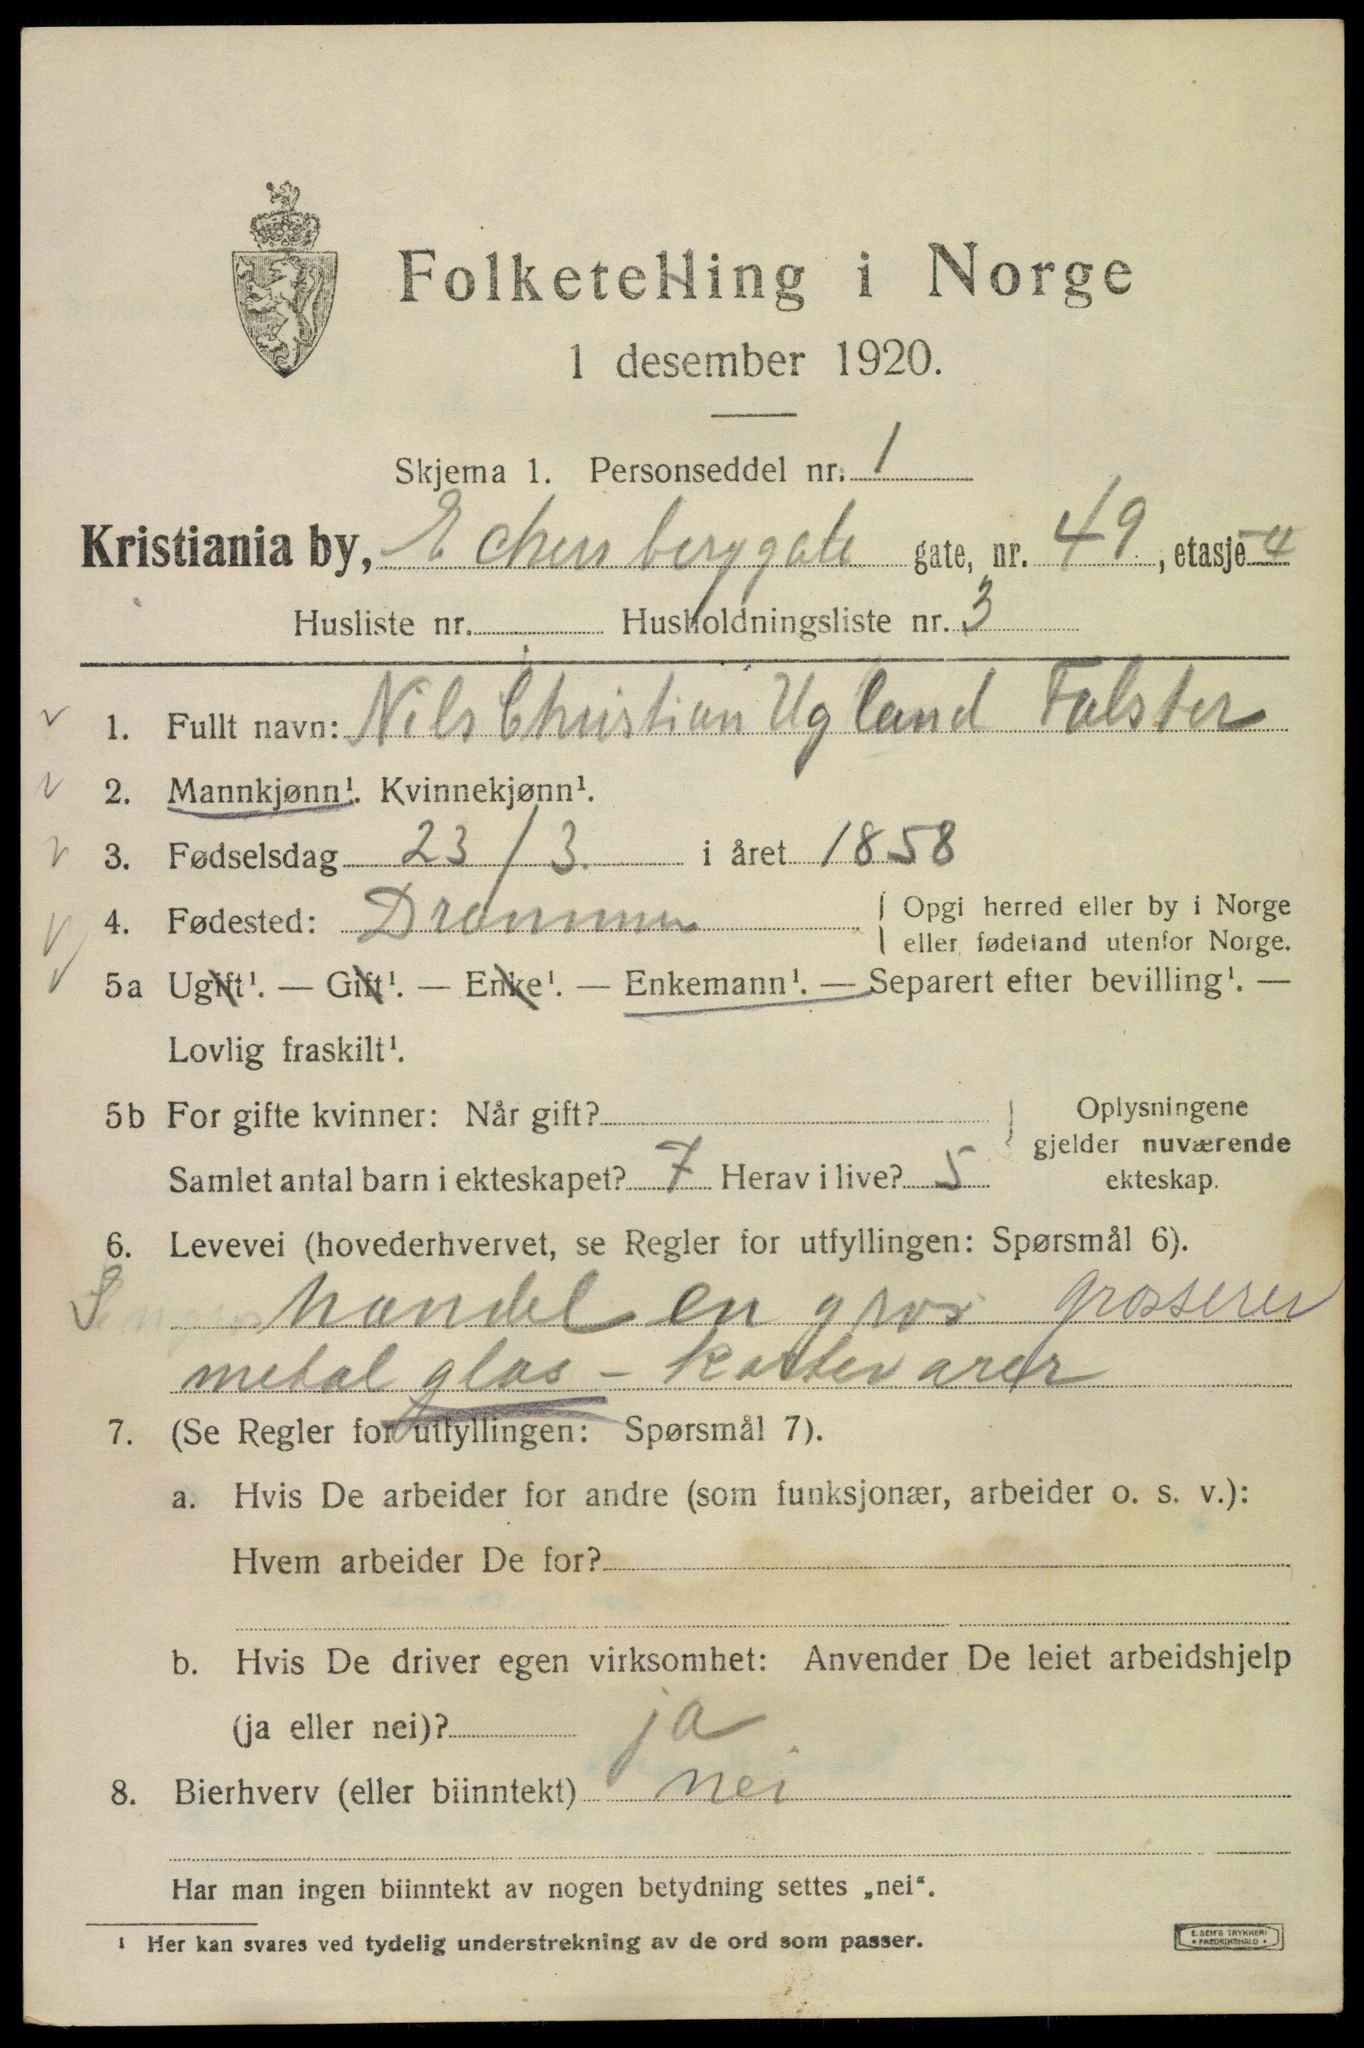 Folketelling i Norge
1 desember 1920.
Skjema 1. Personseddel nr. 1
Kristiania by, Eckersberggate gate, nr. 49, etasje 4
Husliste nr. Husholdningsliste nr. 3
1. Fullt navn: Nils Christian Ugland Falster
2. Mannkjønn¹. Kvinnekjønn¹.
3. Fødselsdag 23/3. i året 1858
4. Fødested: Drammen
Opgi herred eller by i Norge
eller fødeland utenfor Norge.
5a Ugift¹. — Gift¹. — Enke¹. — Enkemann¹. — Separert efter bevilling¹. —
Lovlig fraskilt¹.
5b For gifte kvinner: Når gift?
Samlet antal barn i ekteskapet? 7 Herav i live? 5
Oplysningene
gjelder nuværende
ekteskap.
6. Levevei (hovederhvervet, se Regler for utfyllingen: Spørsmål 6).
handel en gros grosserer
metal glas -
7. (Se Regler for utfyllingen: Spørsmål 7).
a. Hvis De arbeider for andre (som funksjonær, arbeider o. s. v.):
Hvem arbeider De for?
b. Hvis De driver egen virksomhet: Anvender De leiet arbeidshjelp
(ja eller nei)? ja
8. Bierhverv (eller biinntekt) nei
Har man ingen biinntekt av nogen betydning settes „nei“.
¹ Her kan svares ved tydelig understrekning av de ord som passer.
E. SEM'S TRYKKERI
• FREDRIKSHALD •